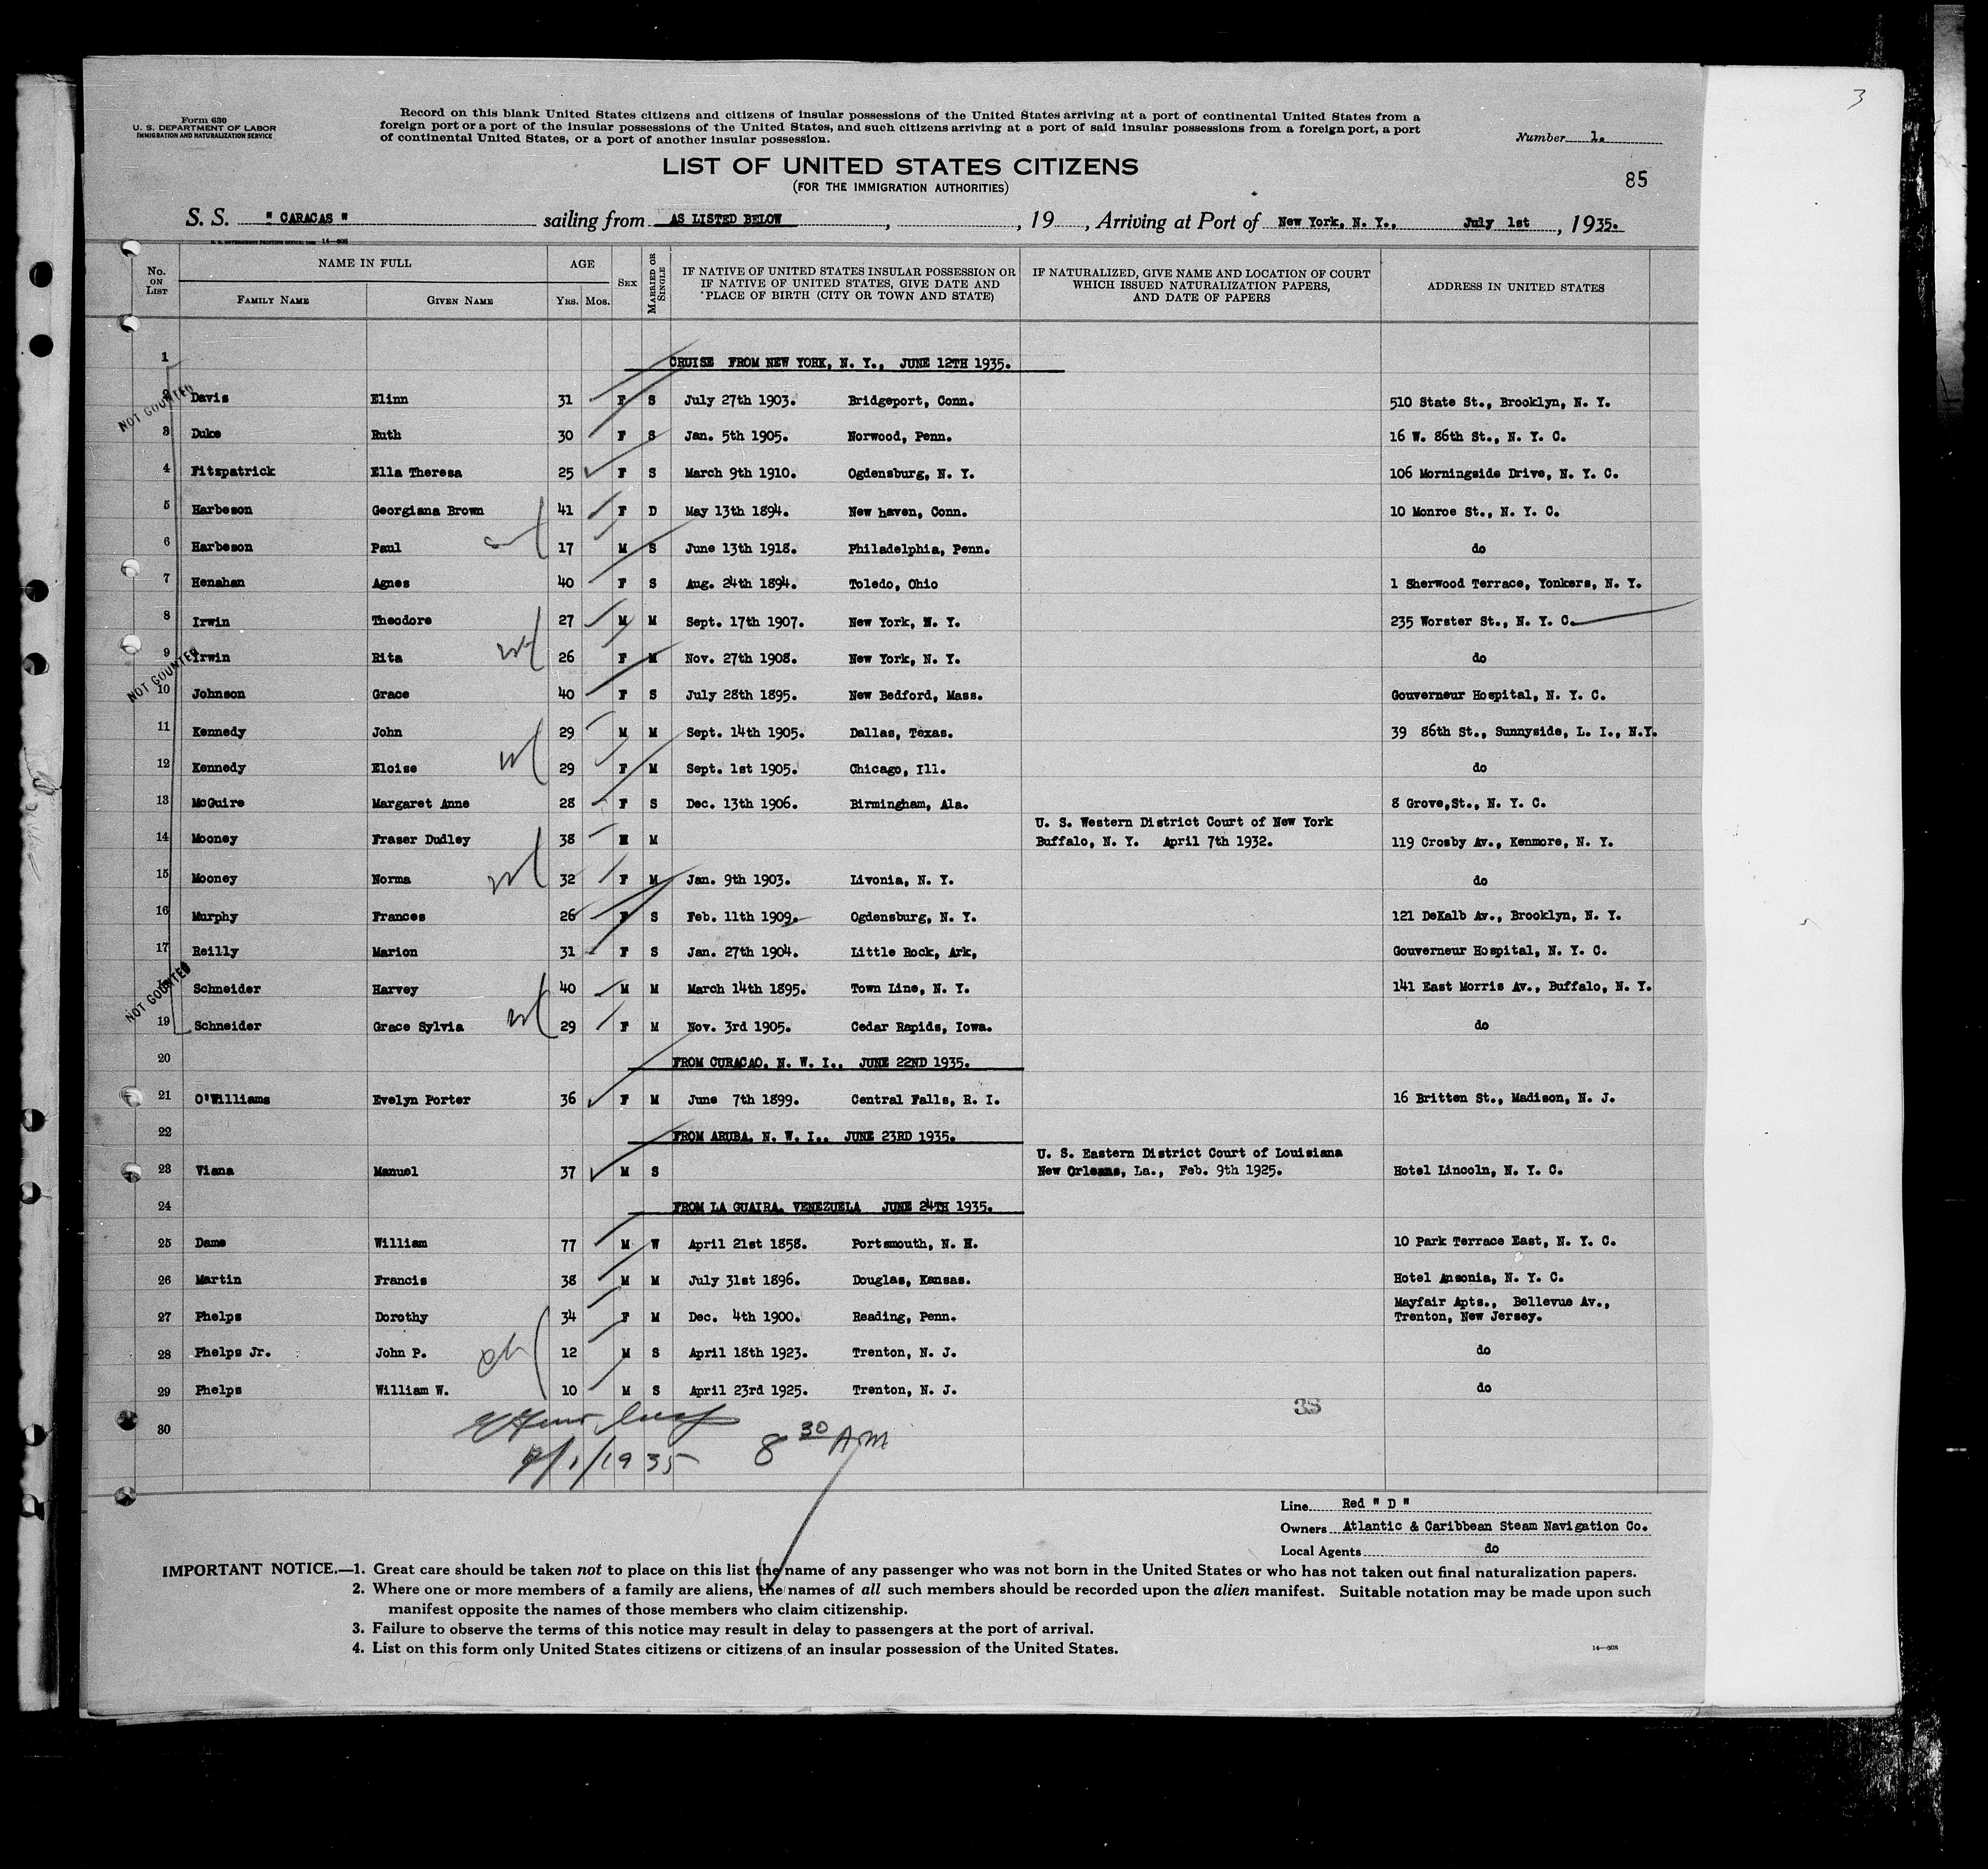 3
Form 630
U. S. DEPARTMENT OF LABOR
IMMIGRATION AND NATURALIZATION SERVICE
Record on this blank United States citizens and citizens of insular possessions of the United States arriving at a port of continental United States from a
foreign port or a port of the insular possessions of the United States, and such citizens arriving at a port of said insular possessions from a foreign port, a port
of continental United States, or a port of another insular possession.
Number 1.
LIST OF UNITED STATES CITIZENS
(FOR THE IMMIGRATION AUTHORITIES)
85
S. S. " CARACAS " sailing from AS LISTED BELOW , , 19 , Arriving at Port of New York, N. Y., July 1st , 1935.
U. S. GOVERNMENT PRINTING OFFICE: 14—608
No. ON LIST NAME IN FULL AGE SEX MARRIED OR SINGLE IF NATIVE OF UNITED STATES INSULAR POSSESSION OR IF NATIVE OF UNITED STATES, GIVE DATE AND PLACE OF BIRTH (CITY OR TOWN AND STATE) IF NATURALIZED, GIVE NAME AND LOCATION OF COURT WHICH ISSUED NATURALIZATION PAPERS, AND DATE OF PAPERS ADDRESS IN UNITED STATES
FAMILY NAME GIVEN NAME YRS. MOS.
1 CRUISE FROM NEW YORK, N. Y., JUNE 12TH 1935.
NOT COUNTED
2 Davis Elinn 31 F S July 27th 1903. Bridgeport, Conn. 510 State St., Brooklyn, N. Y.
3 Duke Ruth 30 F S Jan. 5th 1905. Norwood, Penn. 16 W. 86th St., N. Y. C.
4 Fitzpatrick Ella Theresa 25 F S March 9th 1910. Ogdensburg, N. Y. 106 Morningside Drive, N. Y. C.
5 Harbeson Georgiana Brown 41 F D May 13th 1894. New haven, Conn. 10 Monroe St., N. Y. C.
6 Harbeson Paul 17 M S June 13th 1918. Philadelphia, Penn. do
7 Henahan Agnes 40 F S Aug. 24th 1894. Toledo, Ohio 1 Sherwood Terrace, Yonkers, N. Y.
8 Irwin Theodore 27 M M Sept. 17th 1907. New York, N. Y. 235 Worster St., N. Y. C.
9 Irwin Rita 26 F M Nov. 27th 1908. New York, N. Y. do
NOT COUNTED
10 Johnson Grace 40 F S July 28th 1895. New Bedford, Mass. Gouverneur Hospital, N. Y. C.
11 Kennedy John 29 M M Sept. 14th 1905. Dallas, Texas. 39 86th St., Sunnyside, L. I., N.Y.
12 Kennedy Eloise 29 F M Sept. 1st 1905. Chicago, Ill. do
13 McGuire Margaret Anne 28 F S Dec. 13th 1906. Birmingham, Ala. 8 Grove,St., N. Y. C.
U. S. Western District Court of New York
14 Mooney Fraser Dudley 38 M M Buffalo, N. Y. April 7th 1932. 119 Crosby Av., Kenmore, N. Y.
15 Mooney Norma 32 F M Jan. 9th 1903. Livonia, N. Y. do
16 Murphy Frances 26 F S Feb. 11th 1909. Ogdensburg, N. Y. 121 DeKalb Av., Brooklyn, N. Y.
17 Reilly Marion 31 F S Jan. 27th 1904. Little Rock, Ark, Gouverneur Hospital, N. Y. C.
NOT COUNTED
18 Schneider Harvey 40 M M March 14th 1895. Town Line, N. Y. 141 East Morris Av., Buffalo, N. Y.
19 Schneider Grace Sylvia 29 F M Nov. 3rd 1905. Cedar Rapids, Iowa. do
20 FROM CURACAO, N. W. I., JUNE 22ND 1935.
21 O'Williams Evelyn Porter 36 F M June 7th 1899. Central Falls, R. I. 16 Britten St., Madison, N. J.
22 FROM ARUBA, N. W. I., JUNE 23RD 1935.
U. S. Eastern District Court of Louisiana
23 Viana Manuel 37 M S New Orleans, La., Feb. 9th 1925. Hotel Lincoln, N. Y. C.
24 FROM LA GUAIRA, VENEZUELA JUNE 24TH 1935.
25 Dame William 77 M W April 21st 1858. Portsmouth, N. H. 10 Park Terrace East, N. Y. C.
26 Martin Francis 38 M M July 31st 1896. Douglas, Kansas. Hotel Ansonia, N. Y. C.
Mayfair Apts., Bellevue Av.,
27 Phelps Dorothy 34 F M Dec. 4th 1900. Reading, Penn. Trenton, New Jersey.
28 Phelps Jr. John P. 12 M S April 18th 1923. Trenton, N. J. do
29 Phelps William W. 10 M S April 23rd 1925. Trenton, N. J. do
38
30
7/1/1935 8 30 AM
Line Red " D "
Owners Atlantic & Caribbean Steam Navigation Co.
Local Agents do
IMPORTANT NOTICE.—1. Great care should be taken not to place on this list the name of any passenger who was not born in the United States or who has not taken out final naturalization papers.
2. Where one or more members of a family are aliens, the names of all such members should be recorded upon the alien manifest. Suitable notation may be made upon such
manifest opposite the names of those members who claim citizenship.
3. Failure to observe the terms of this notice may result in delay to passengers at the port of arrival.
4. List on this form only United States citizens or citizens of an insular possession of the United States.
14—608